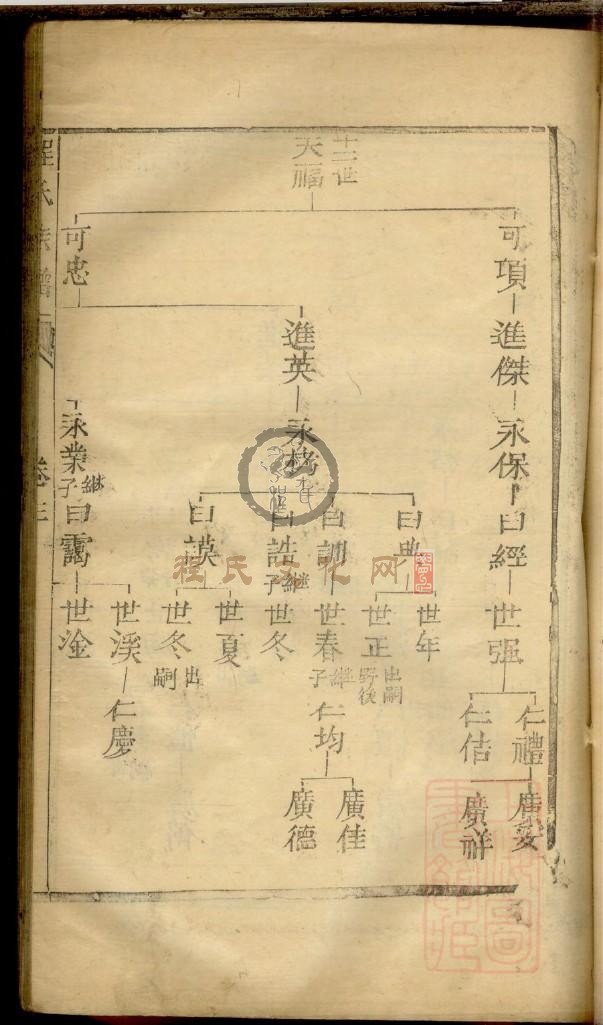 十二世
天福
可項
進傑
永保
曰經
世强
仁禮
仁佶
廣祥
可忠
進英
永格
曰典
世年
世正
出嗣
野後
曰訓
世春
繼子
仁均
廣佳
廣德
曰誥
繼子
世冬
曰謨
世夏
世冬
出嗣
永業
繼子
曰靄
世溪
仁慶
世淦
程氏族譜
卷三
程氏文化网